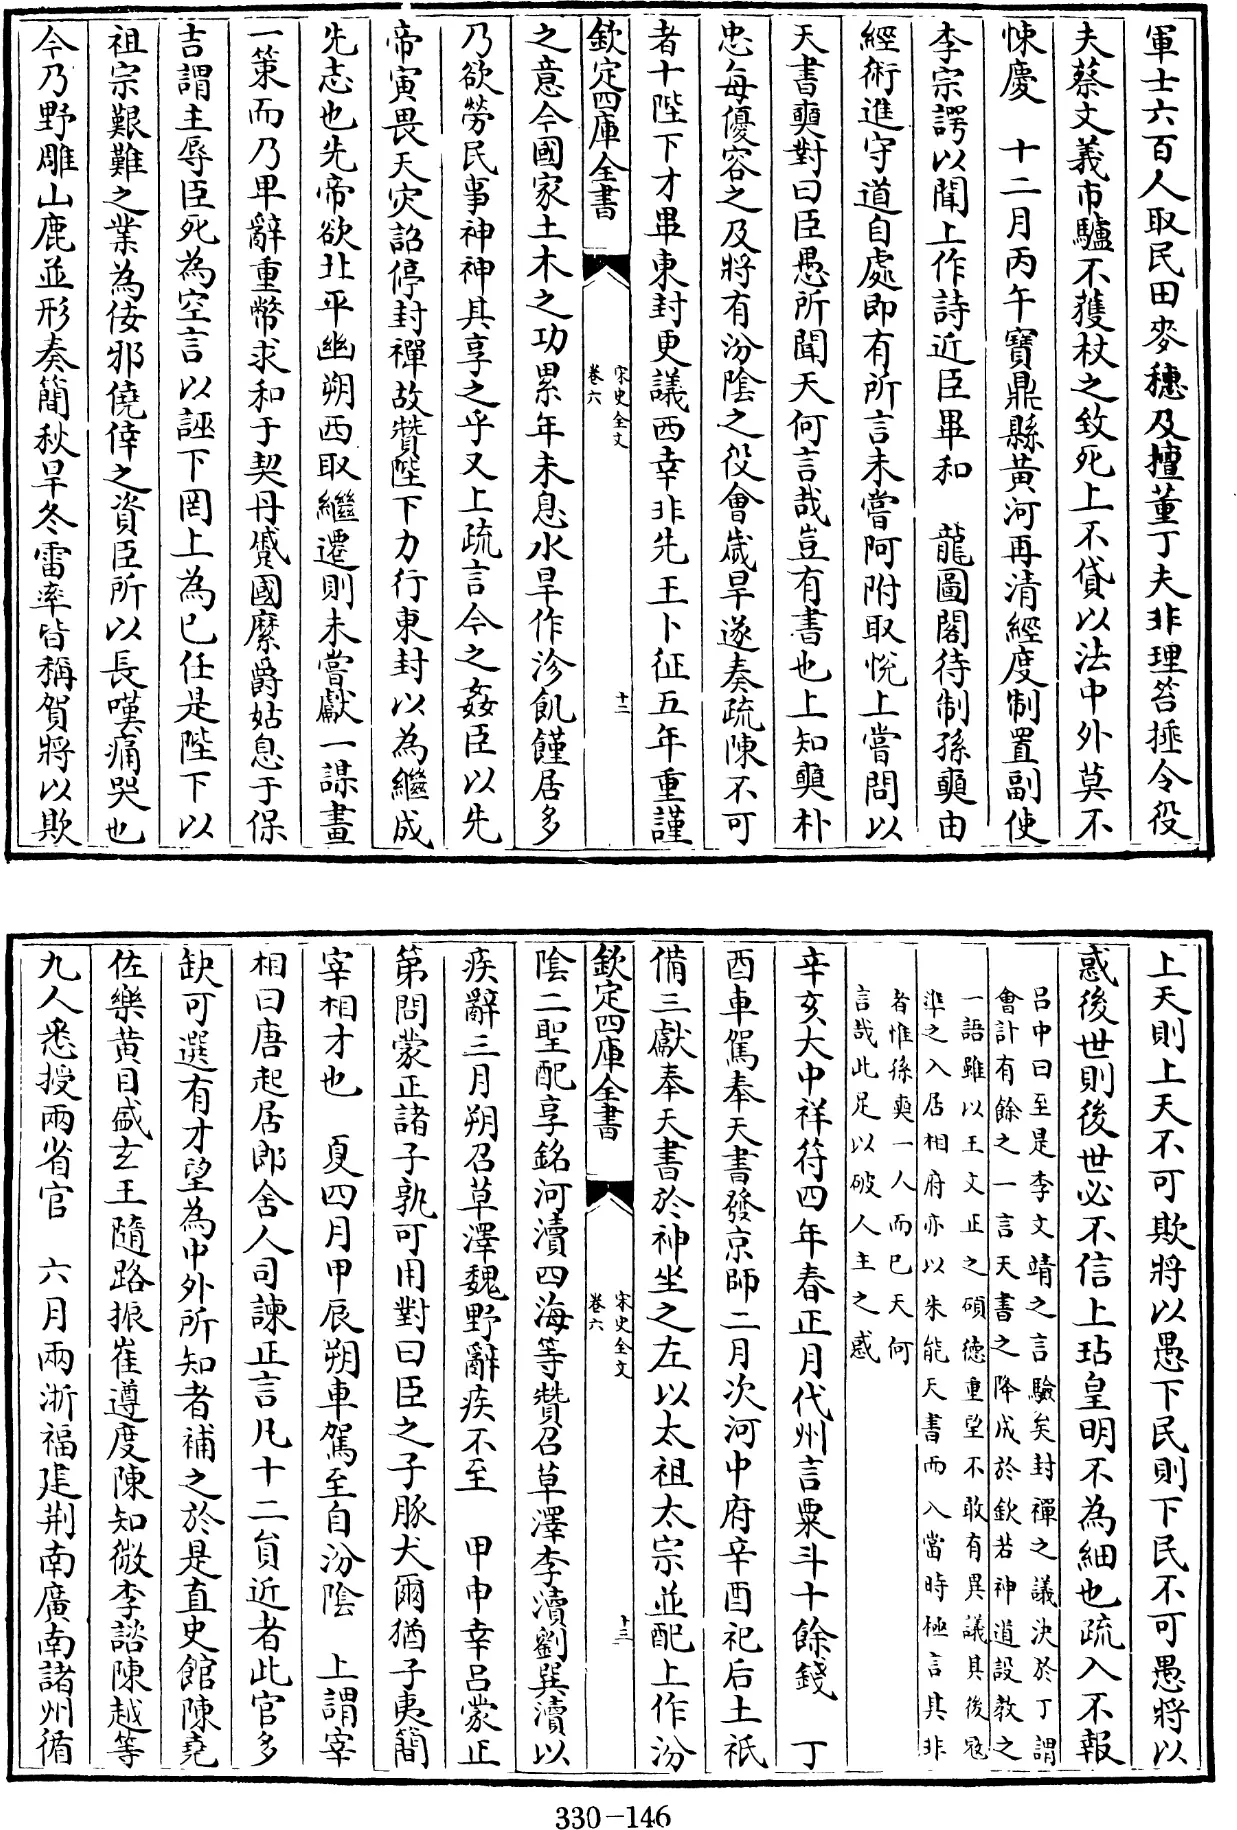 軍士六百人取民田麥穗及擅董丁夫非理笞捶令役
夫蔡文義市驢不獲杖之致死上不貸以法中外莫不
悚慶　十二月丙午寶鼎縣黃河再清經度制置副使
李宗諤以聞上作詩近臣畢和　龍圖閣待制孫奭由
經術進守道自處即有所言未嘗阿附取悅上嘗問以
天書奭對曰臣愚所聞天何言哉豈有書也上知奭朴
忠每優容之及將有汾陰之役會歲旱遂奏疏陳不可
者十陛下才畢東封更議西幸非先王卜征五年重謹
欽定四庫全書
宋史全文
卷六
十二
之意今國家土木之功累年未息水旱作沴飢饉居多
乃欲勞民事神神其享之乎又上疏言今之姦臣以先
帝寅畏天災詔停封禪故贊陛下力行東封以為繼成
先志也先帝欲北平幽朔西取繼遷則未嘗獻一謀畫
一策而乃卑辭重幣求和于契丹蹙國縻爵姑息于保
吉謂主辱臣死為空言以誣下罔上為已任是陛下以
祖宗艱難之業為佞邪僥倖之資臣所以長嘆痛哭也
今乃野雕山鹿並形奏簡秋旱冬雷率皆稱賀將以欺
上天則上天不可欺將以愚下民則下民不可愚將以
惑後世則後世必不信上玷皇明不為細也疏入不報
呂中曰至是李文靖之言驗矣封禪之議決於丁謂
會計有餘之一言天書之降成於欽若神道設教之
一語雖以王文正之碩德重望不敢有異議其後寇
準之入居相府亦以朱能天書而入當時極言其非
者惟孫奭一人而已天何
言哉此足以破人主之惑
辛亥大中祥符四年春正月代州言粟斗十餘錢　丁
酉車駕奉天書發京師二月次河中府辛酉祀后土祇
備三獻奉天書於神坐之左以太祖太宗並配上作汾
欽定四庫全書
宋史全文
卷六
十三
陰二聖配享銘河瀆四海等贊召草澤李瀆劉巽瀆以
疾辭三月朔召草澤魏野辭疾不至　甲申幸呂蒙正
第問蒙正諸子孰可用對曰臣之子豚犬爾猶子夷簡
宰相才也　夏四月甲辰朔車駕至自汾陰　上謂宰
相曰唐起居郎舍人司諫正言凡十二員近者此官多
缺可選有才望為中外所知者補之於是直史館陳堯
佐樂黃目盛玄王隨路振崔遵度陳知微李諮陳越等
九人悉授兩省官　六月兩浙福建荆南廣南諸州循
330-146